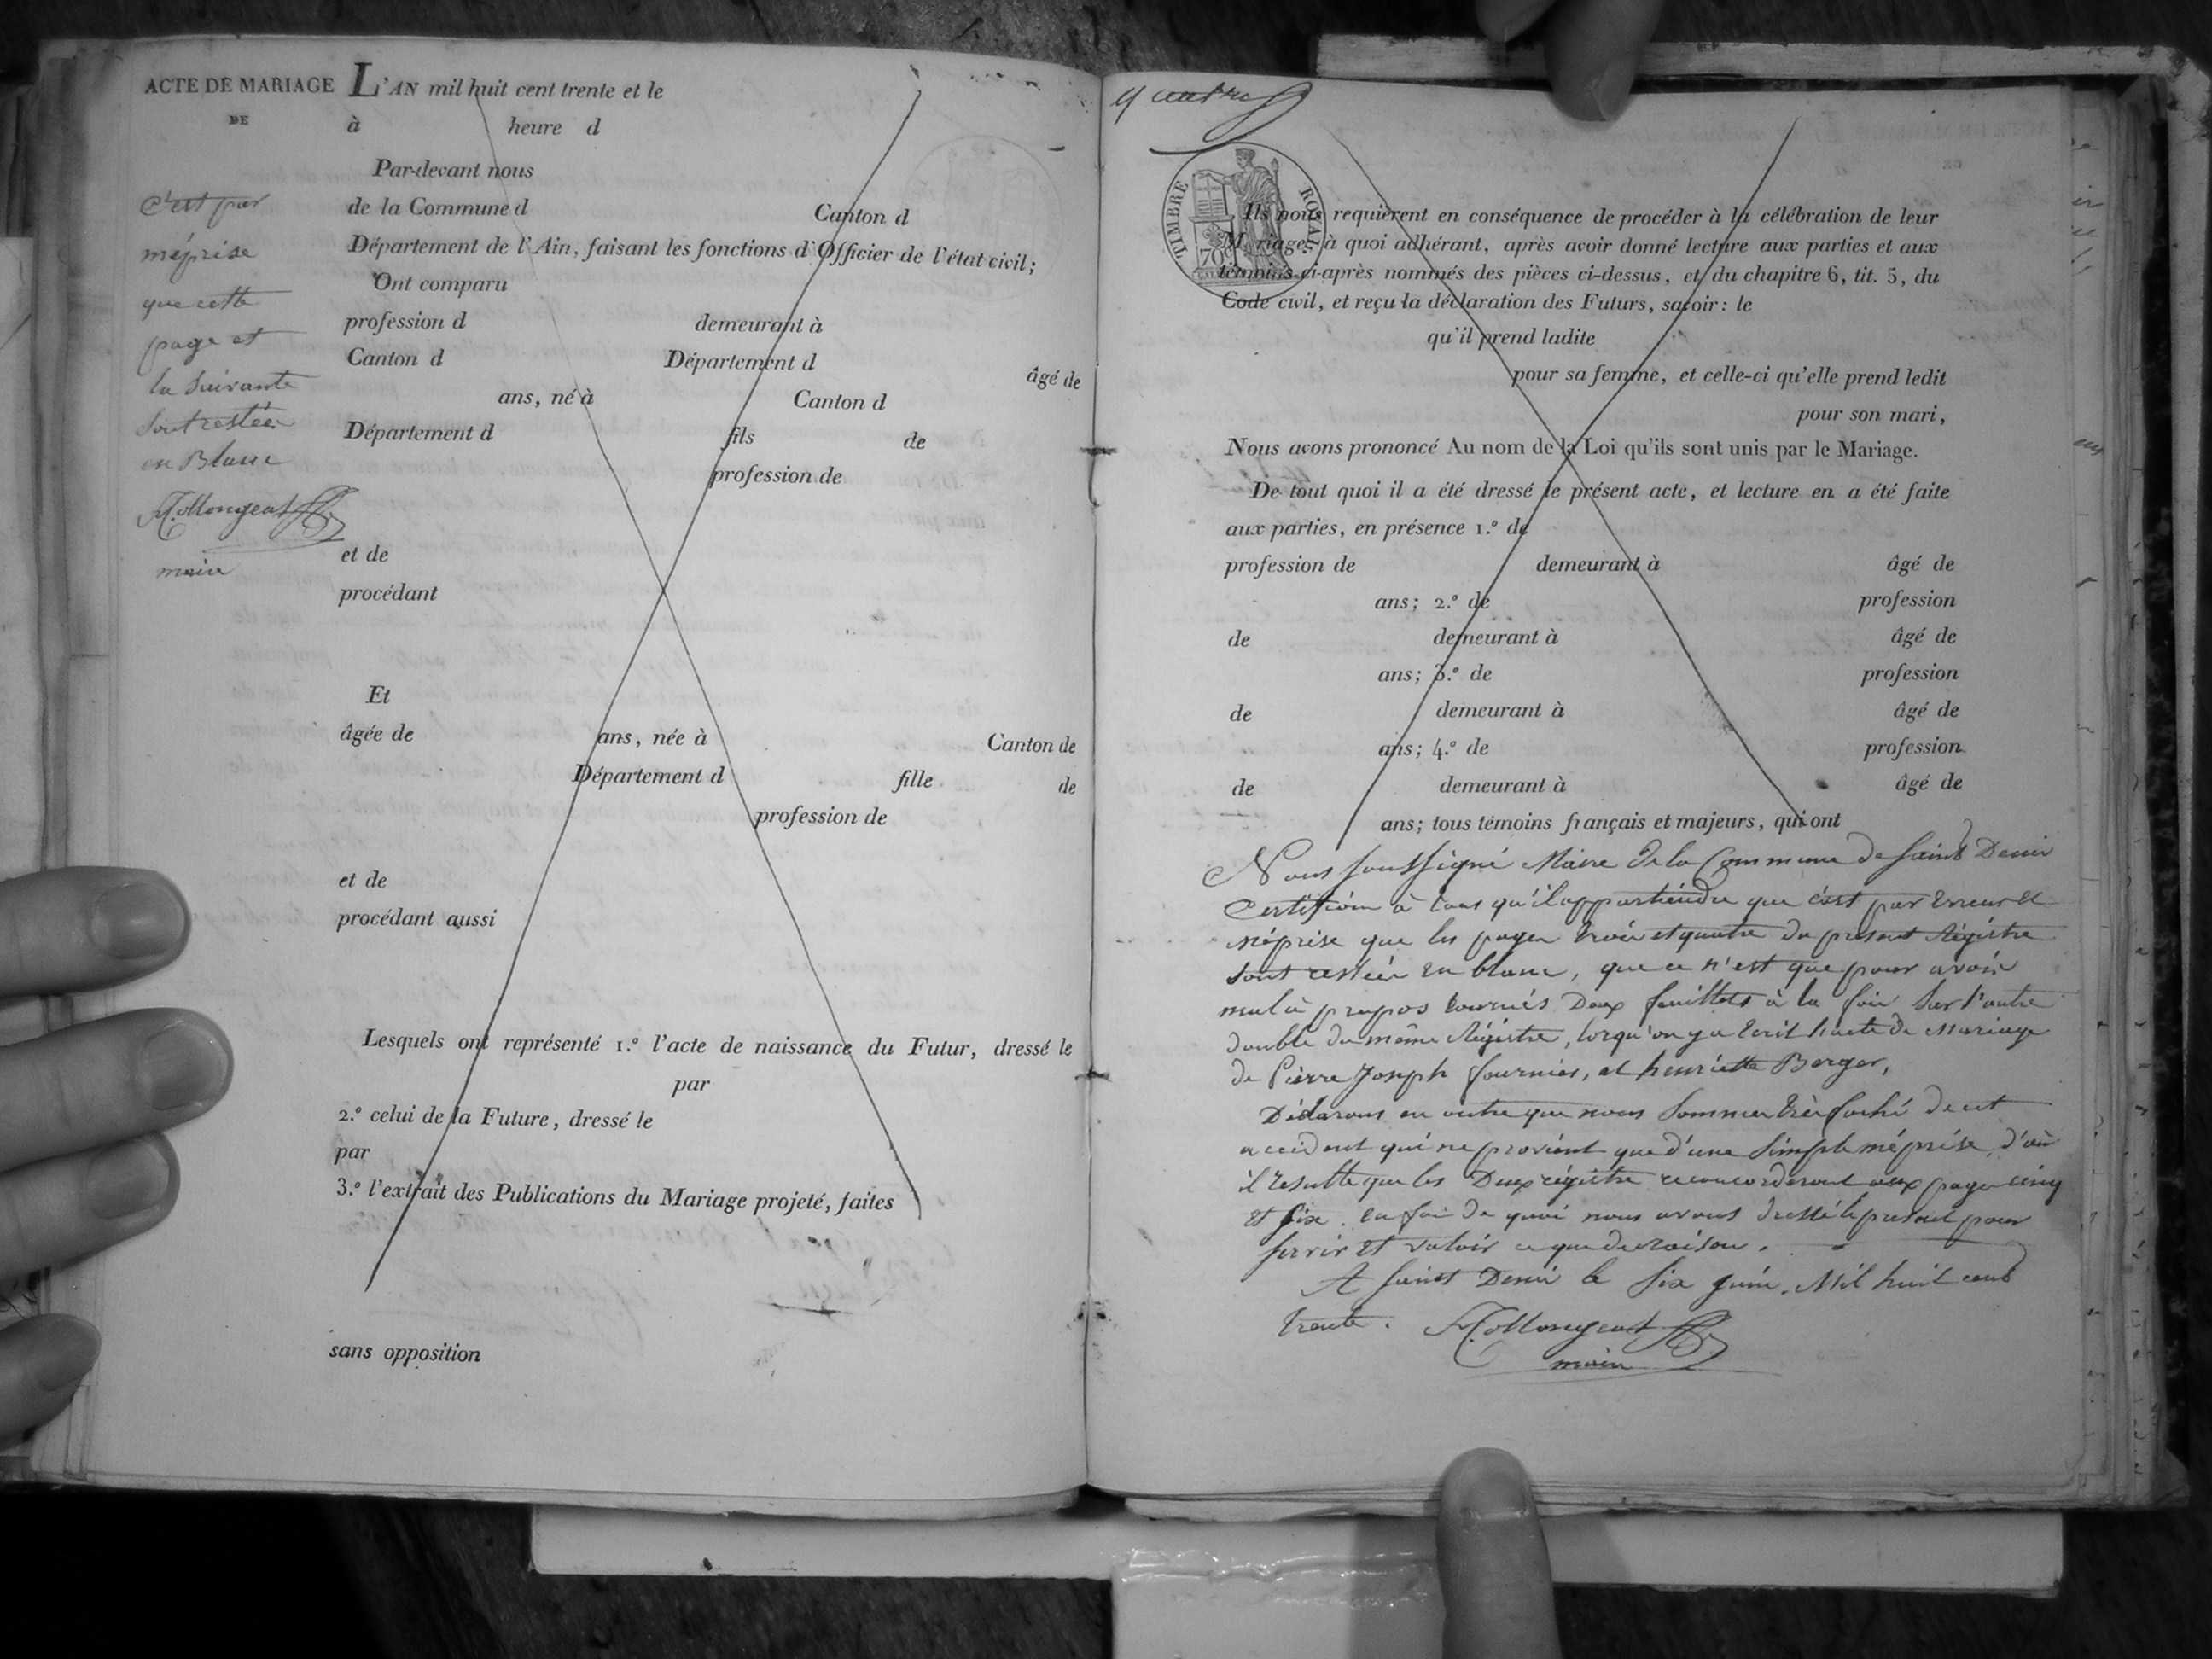 ACTE DE MARIAGE
DE
L'AN mil huit cent trente et le
à heure d
Par-devant nous
de la Commune d Canton d
Département de l'Ain, faisant les fonctions d'Officier de l'état civil;
Ont comparu
profession d demeurant à
Canton d Département d âgé de
ans, né à Canton d
Département d fils de
profession de
et de
procédant
Et
âgée de ans, née à Canton de
Département d fille de
profession de
et de
procédant aussi
Lesquels ont représenté 1.º l'acte de naissance du Futur, dressé le
par
2.º celui de la Future, dressé le
par
3.º l'extrait des Publications du Mariage projeté, faites
sans opposition
C'est par
méprise
que cette
page et
la Suivante
Sont restées
en Blanc
maire
quatre
TIMBRE ROYAL
70
Ils nous requièrent en conséquence de procéder à la célébration de leur
Mariage, à quoi adhérant, après avoir donné lecture aux parties et aux
témoins ci-après nommés des pièces ci-dessus, et du chapitre 6, tit. 5, du
Code civil, et reçu la déclaration des Futurs, savoir: le
qu'il prend ladite
pour sa femme, et celle-ci qu'elle prend ledit
pour son mari,
Nous avons prononcé Au nom de la Loi qu'ils sont unis par le Mariage.
De tout quoi il a été dressé le présent acte, et lecture en a été faite
aux parties, en présence 1.º de
profession de demeurant à âgé de
ans; 2.º de profession
de demeurant à âgé de
ans; 3.º de profession
de demeurant à âgé de
ans; 4.º de profession
de demeurant à âgé de
ans; tous témoins français et majeurs, qui ont
Nous soussigné Maire de la Commune de Saint Denis
Certifions à tous qu'il appartiendra que c'est par Erreur Et
méprise que les pages trois et quatre du présent Régistre
Sont restées en blanc, que ce n'est que pour avoir
mal à propos tournés Deux feuillets à la fois Sur l'autre
double du même Régistre, lorqu'on y a Ecrit l'acte de Mariage
de Pierre Joseph fournier, et henriette Berger,
Déclarons en outre que nous Sommes très faché de cet
accident qui ne provient que d'une Simple méprise, d'où
il résulte que les Deux régistre reconcorderont aux pages cinq
Et Six. en foi de quoi nous avons dressé le présent pour
servir Et valoir ce que de raison.
A Saint Denis le Six juin, Mil huit cent
trente.
maire